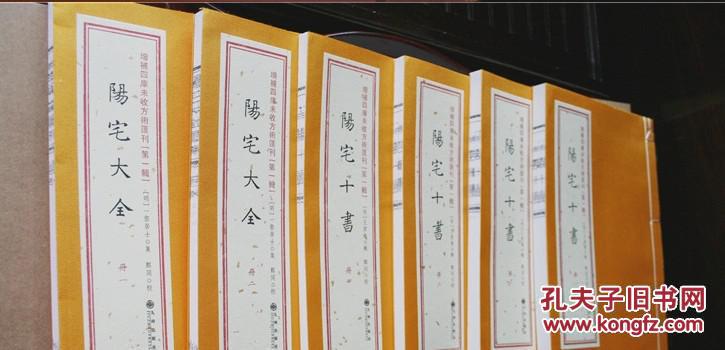 增補四庫未收方術匯刊【第一輯】
陽宅大全
【明】一壑居士◎集 鄭同◎校
冊一
增補四庫未收方術匯刊【第一輯】
陽宅大全
【明】一壑居士◎集 鄭同◎校
冊二
增補四庫未收方術匯刊【第一輯】
陽宅十書
增補四庫未收方術匯刊【第一輯】
陽宅十書
增補四庫未收方術匯刊【第一輯】
陽宅十書
增補四庫未收方術匯刊【第一輯】
陽宅十書
孔夫子旧书网
www.kongfz.com